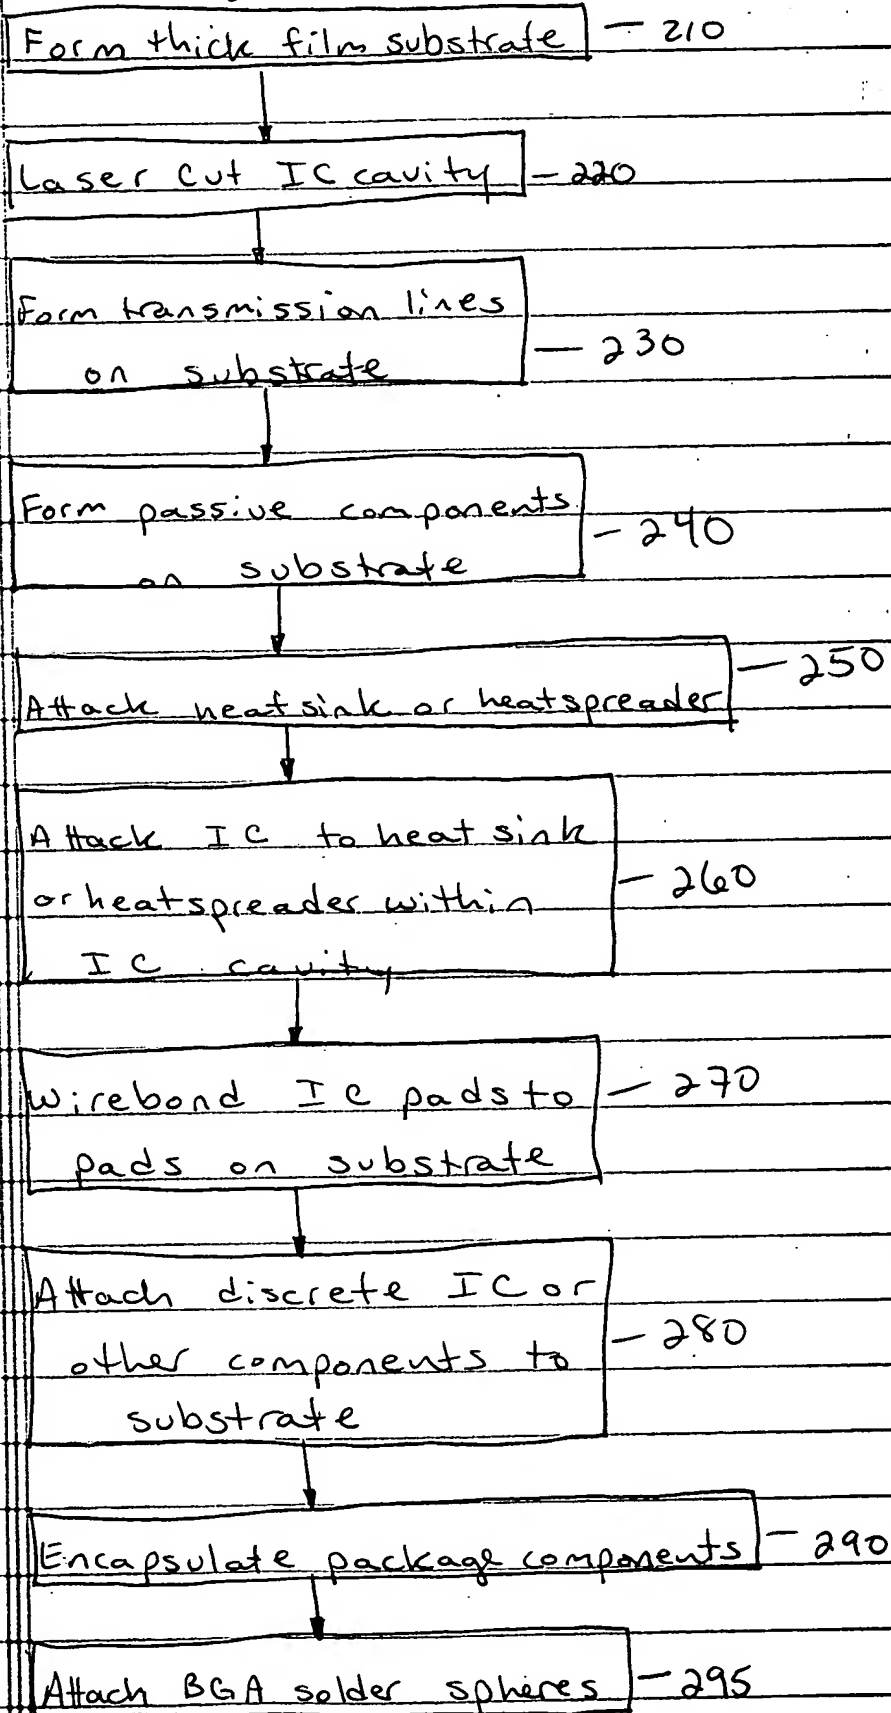 Form thick film substrate - 210
Laser Cut IC cavity - 220
Form transmission lines
on substrate - 230
Form passive components
on substrate - 240
Attack heatsink or heatspreader - 250
Attack IC to heat sink
or heatspreader within - 260
IC cavity
Wirebond IC pads to - 270
pads on substrate
Attach discrete IC or
other components to - 280
substrate
Encapsulate package components - 290
Attach BGA solder spheres - 295